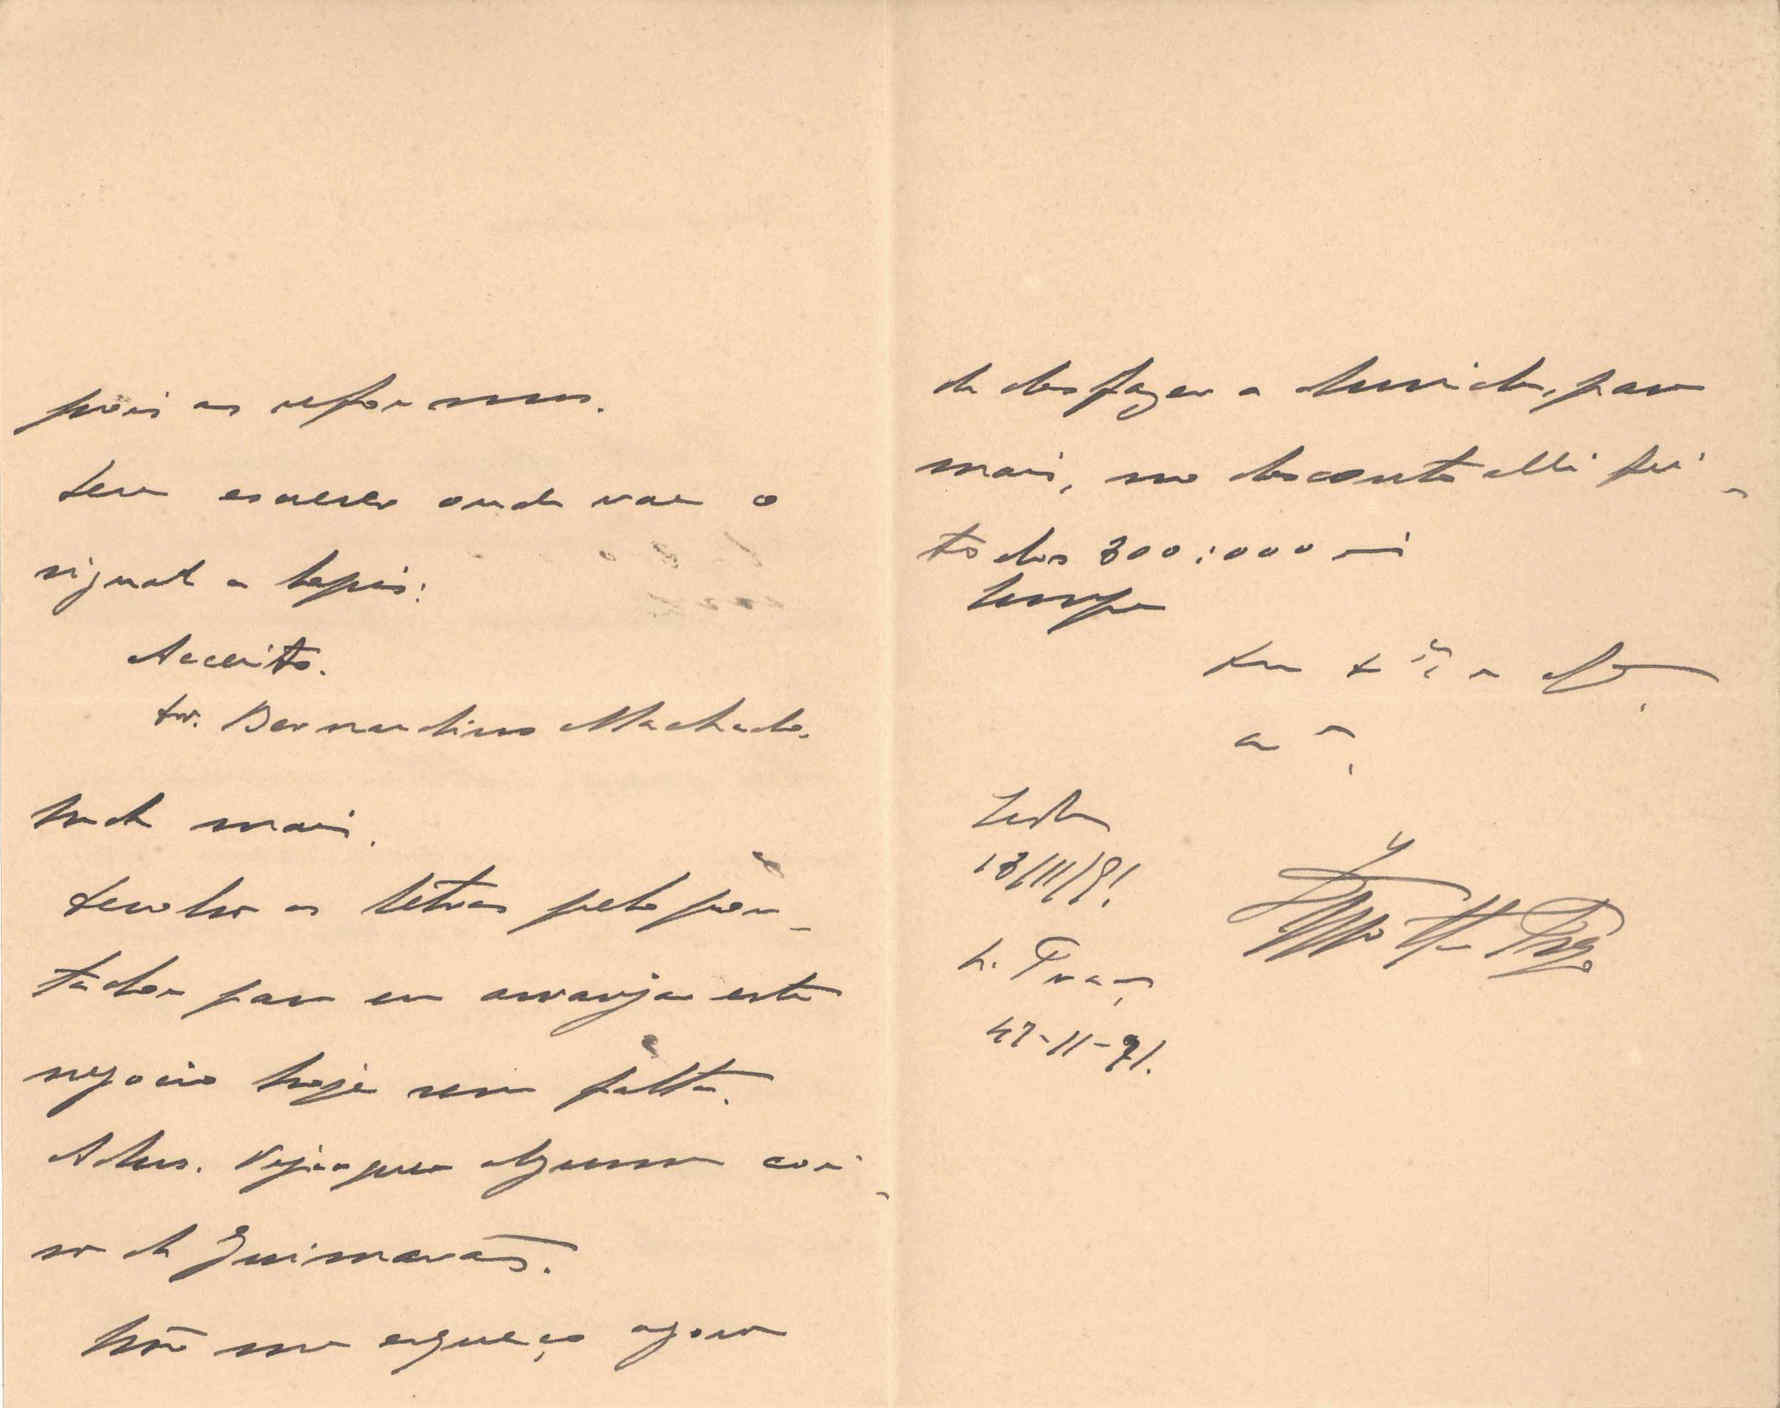 pois as reformas.
tem escrever onde vae o
signal a lapis:
Acceito.
Dr. Bernardino Machado.
Nada mais.
devolvo as letras pelo por-
tador para eu arranjar este
negocio hoje sem falta.
Adeus. Veja se quer alguma coi-
sa de Guimarães.
Não me esqueço agora
de desfazer a duvida, para
mais, no desconto alli fei-
to dos 300:000 rs
Sempre
a
13/11/91
17-11-91.